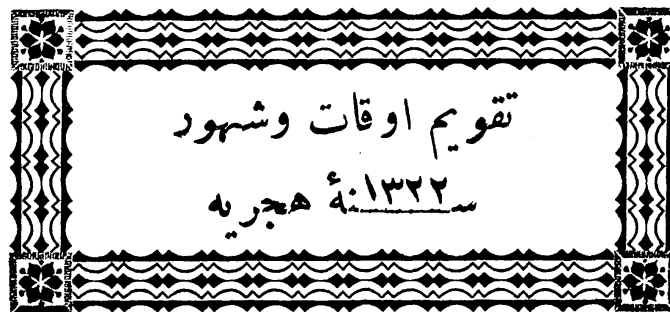 تقويم اوقات وشهور
سنۀ ١٣٢٢ هجريه